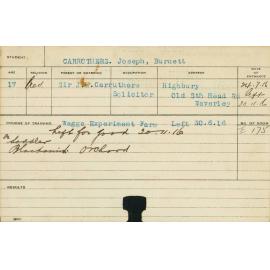 STUDENT.
CARRUTHERS, Joseph, Burnett
AGE
RELIGION
PARENT OR GUARDIAN
OCCUPATION
ADDRESS
DATE OF ENTRANCE
17
Sir J.H. Carruthers
Highbury
Solicitor
Old Sth Head Rd
Waverley
20.11.16
COURSE OF TRAINING
Wagga Experiment Farm
Left 30.6.16
NO. OF ROOM
Left for good 20.11.16
E 175
Saddler
Blacksmith Orchard
RESULTS